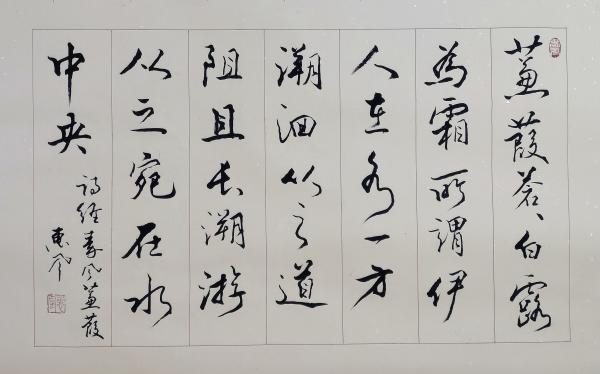 蒹葭蒼、白露
為霜所謂伊
人在水一方
溯洄从之道
阻且长溯游
从之宛在水
中央
诗经秦风蒹葭